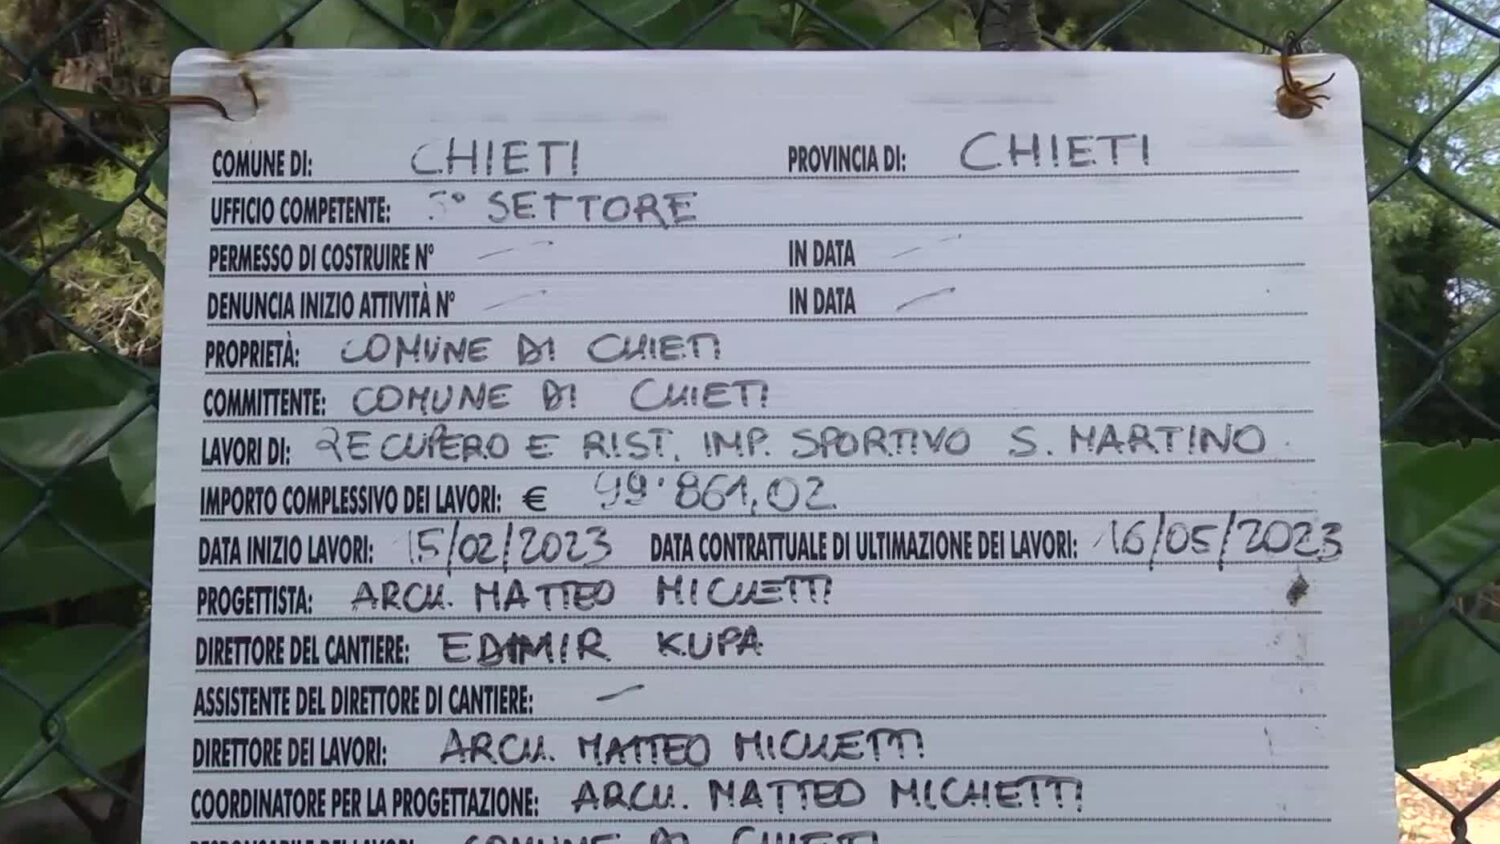 COMUNE DI: CHIETI PROVINCIA DI: CHIETI
UFFICIO COMPETENTE: 5° SETTORE
PERMESSO DI COSTRUIRE N° - IN DATA -
DENUNCIA INIZIO ATTIVITÀ N° - IN DATA -
PROPRIETÀ: COMUNE DI CHIETI
COMMITTENTE: COMUNE DI CHIETI
LAVORI DI: RECUPERO E RIST. IMP. SPORTIVO S. MARTINO
IMPORTO COMPLESSIVO DEI LAVORI: € 99.861,02
DATA INIZIO LAVORI: 15/02/2023 DATA CONTRATTUALE DI ULTIMAZIONE DEI LAVORI: 16/05/2023
PROGETTISTA: ARCH. MATTEO MICHETTI
DIRETTORE DEL CANTIERE: EDIMIR KUPA
ASSISTENTE DEL DIRETTORE DI CANTIERE: -
DIRETTORE DEI LAVORI: ARCH. MATTEO MICHETTI
COORDINATORE PER LA PROGETTAZIONE: ARCH. MATTEO MICHETTI
COMUNE DI CHIETI